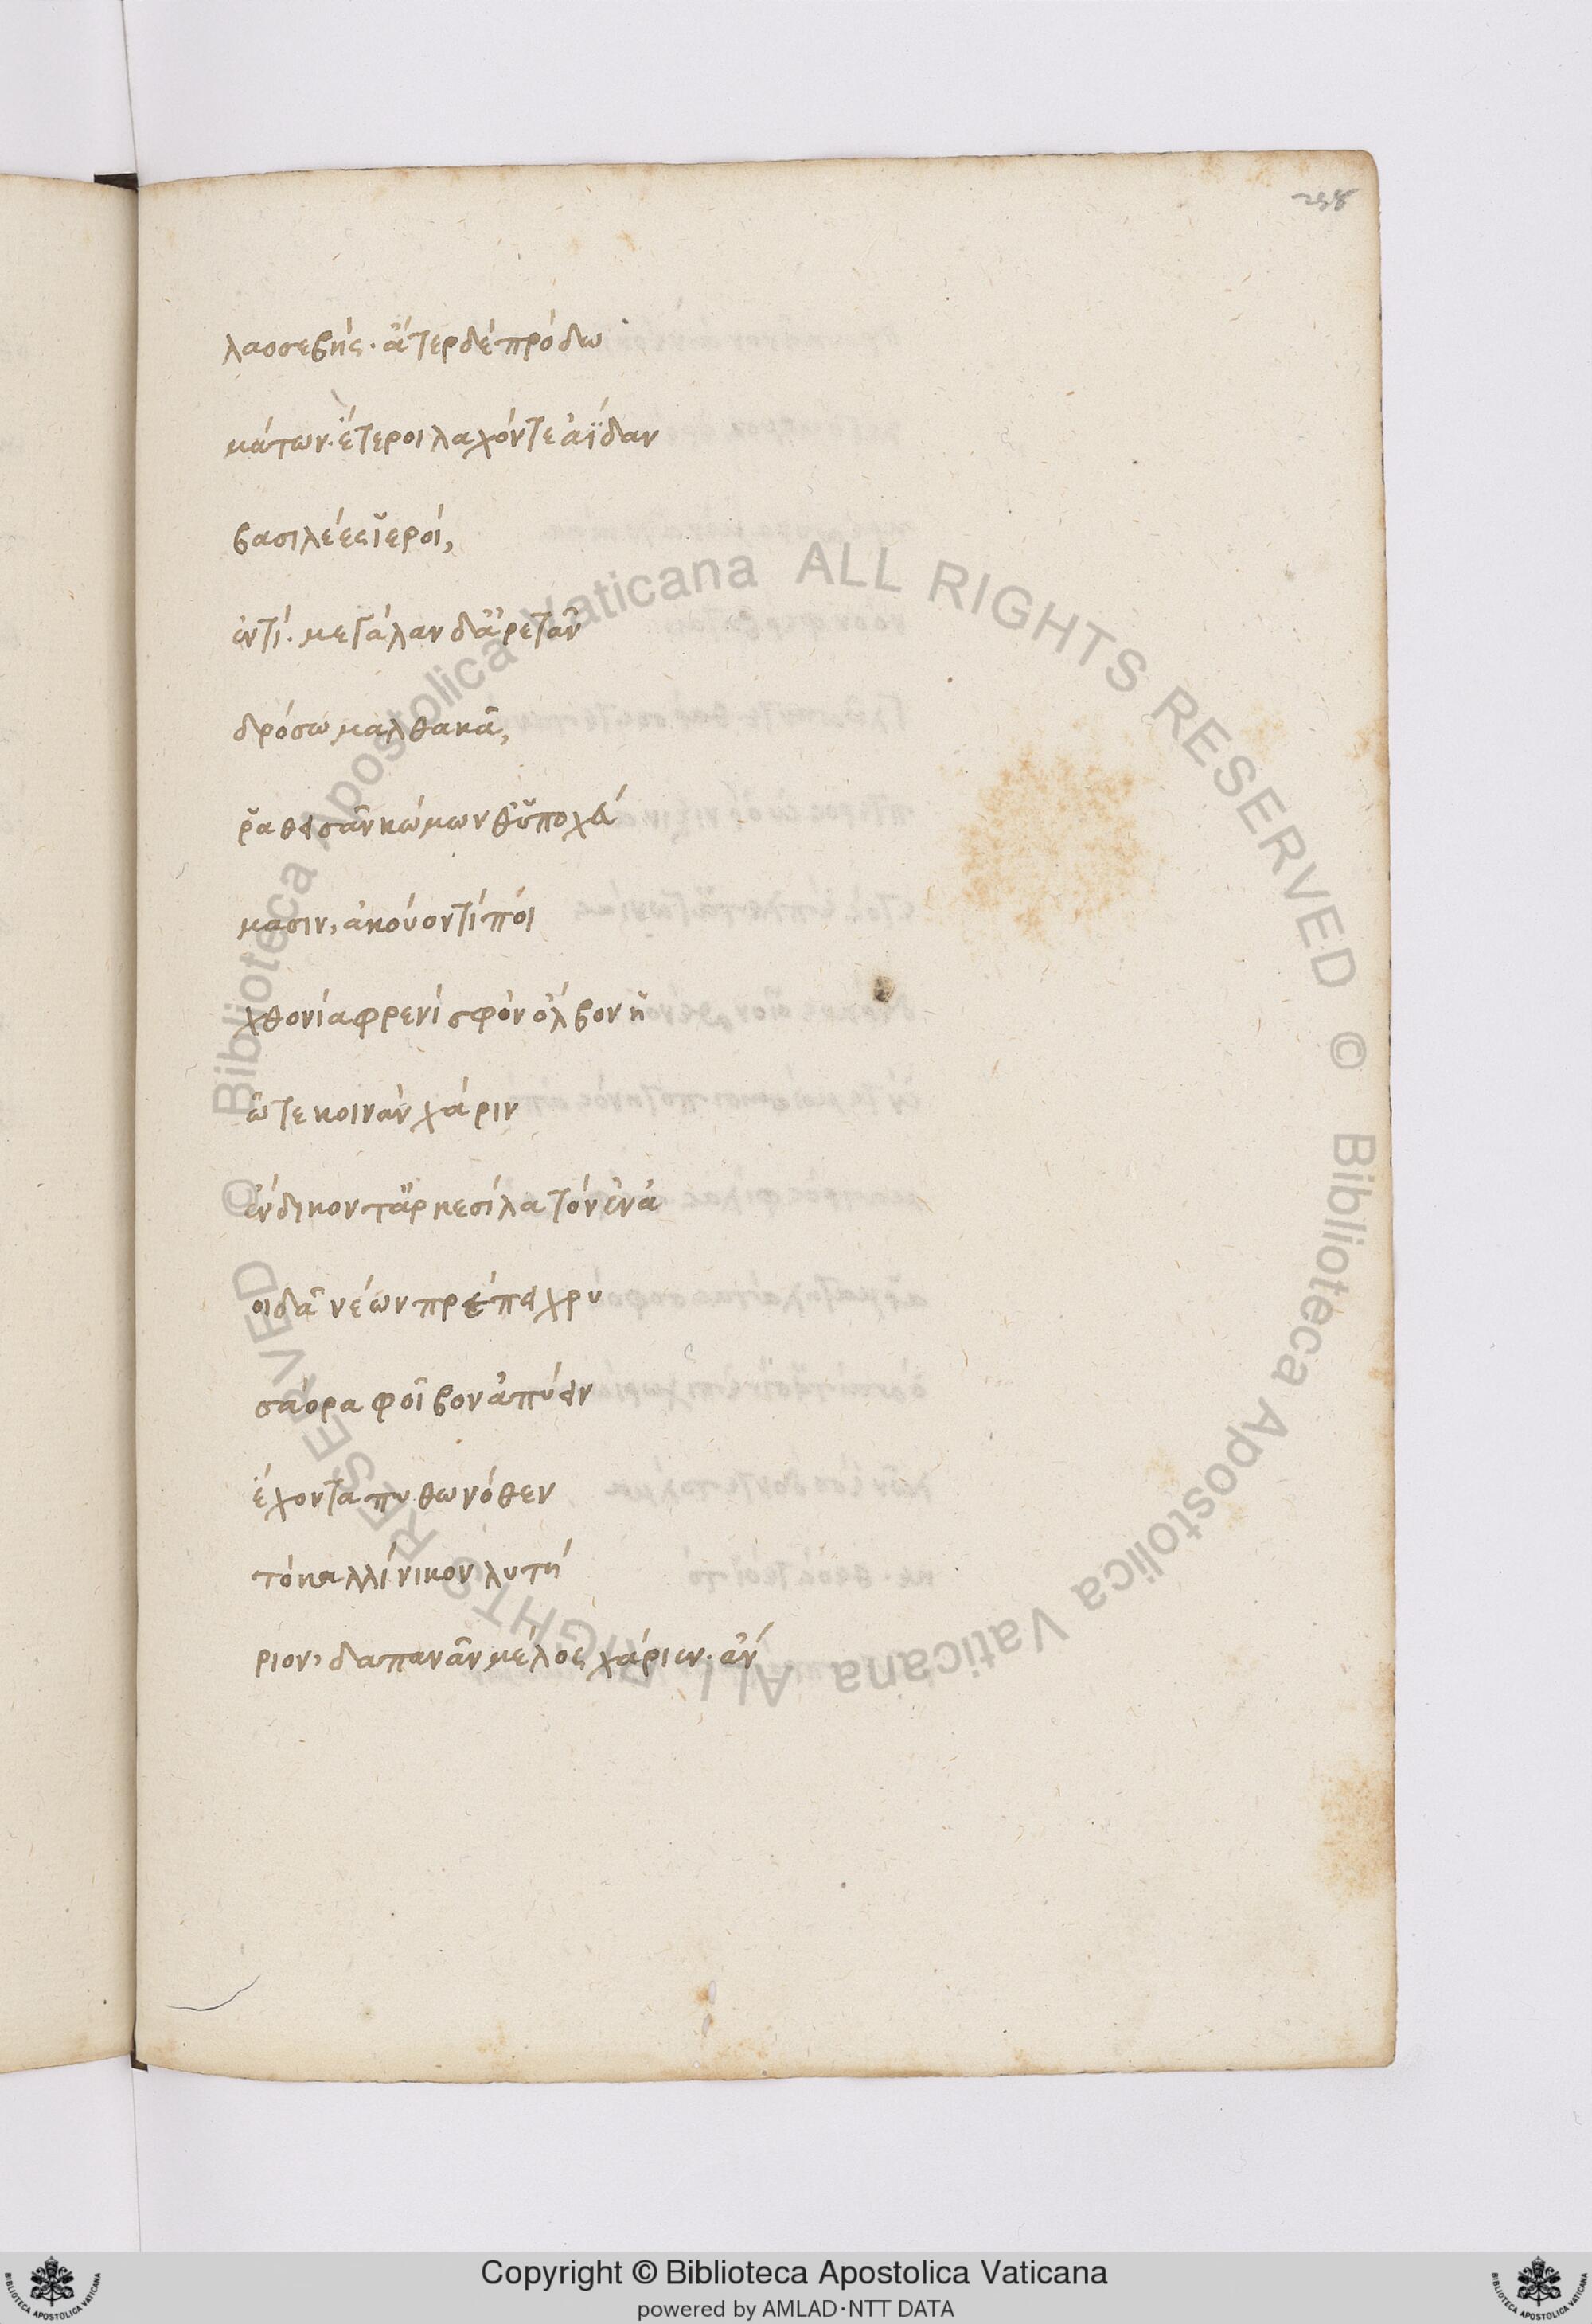 258
λαοσεβής. ἄτερ δὲ πρὸ δω
μάτων. ἕτεροι λαχόντε ἀΐδαν
βασιλέες ἱεροί,
ἐντί. μεγάλαν δ' ἀρετὰν
δρόσω μαλθακᾶ,
ῥαθεισᾶν κώμων θ' ὑπὸ χεύ
μασιν, ἀκούοντί ποι
χθονία φρενὶ σφὸν ὄλβον υἱ
ῶ τε κοινὰν χάριν
ἔνδικον τ' ἀρκεσίλα τὸν ἐν ἀ
οιδᾶ νέων πρέπει χρυ
σάορα φοῖβον ἀπύειν
ἔχοντα πυθωνόθεν
τὸ καλλίνικον λυτή
ριον, δαπανᾶν μέλος χάριεν. ἄν
Biblioteca Apostolica Vaticana ALL RIGHTS RESERVED ©
Biblioteca Apostolica Vaticana ALL RIGHTS RESERVED ©
Copyright © Biblioteca Apostolica Vaticana
powered by AMLAD·NTT DATA
BIBLIOTECA APOSTOLICA VATICANA
BIBLIOTECA APOSTOLICA VATICANA